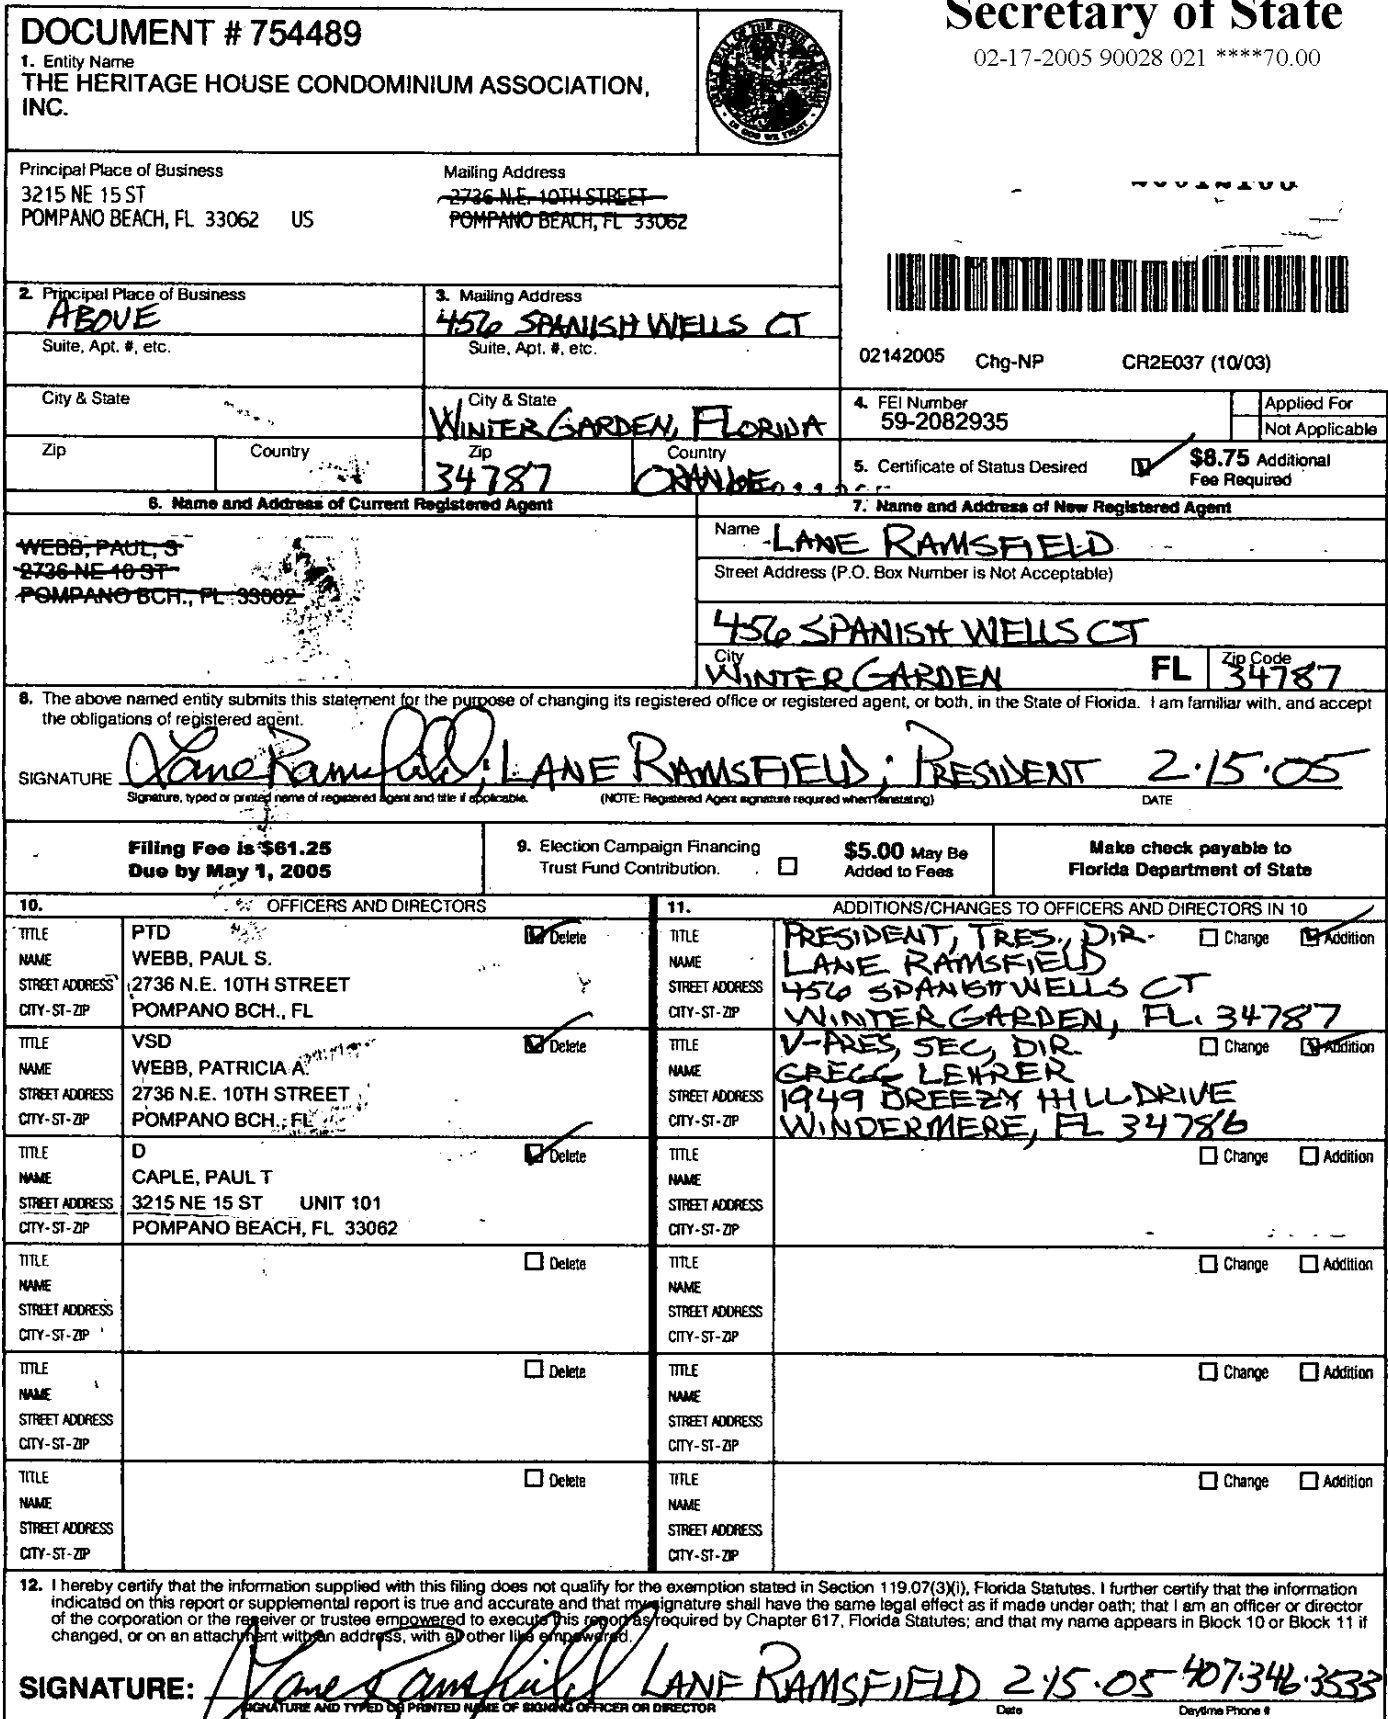 Secretary of State
02-17-2005 90028 021 ****70.00
DOCUMENT # 754489
1. Entity Name
THE HERITAGE HOUSE CONDOMINIUM ASSOCIATION,
INC.
Principal Place of Business
3215 NE 15 ST
POMPANO BEACH, FL 33062 US
Mailing Address
2736 N.E. 10TH STREET
POMPANO BEACH, FL 33062
2. Principal Place of Business
ABOVE
Suite, Apt. #, etc.
City & State
Zip
Country
3. Mailing Address
456 SPANISH WELLS CT
Suite, Apt. #, etc.
City & State
WINTER GARDEN, FLORIDA
Zip
34787
Country
ORANGE
02142005 Chg-NP CR2E037 (10/03)
4. FEI Number
59-2082935
Applied For
Not Applicable
5. Certificate of Status Desired
$8.75 Additional
Fee Required
6. Name and Address of Current Registered Agent
WEBB, PAUL, S
2736 NE 10 ST
POMPANO BCH., FL 33062
7. Name and Address of New Registered Agent
Name LANE RAMSFIELD
Street Address (P.O. Box Number is Not Acceptable)
456 SPANISH WELLS CT
City
WINTER GARDEN
FL
Zip Code
34787
8. The above named entity submits this statement for the purpose of changing its registered office or registered agent, or both, in the State of Florida. I am familiar with, and accept
the obligations of registered agent.
SIGNATURE Lane Ramsfield; LANE RAMSFIELD; PRESIDENT 2.15.05
Signature, typed or printed name of registered agent and title if applicable. (NOTE: Registered Agent signature required when reinstating) DATE
Filing Fee is $61.25
Due by May 1, 2005
9. Election Campaign Financing
Trust Fund Contribution.
$5.00 May Be
Added to Fees
Make check payable to
Florida Department of State
10. OFFICERS AND DIRECTORS
TITLE PTD Delete
NAME WEBB, PAUL S.
STREET ADDRESS 2736 N.E. 10TH STREET
CITY-ST-ZIP POMPANO BCH., FL
TITLE VSD Delete
NAME WEBB, PATRICIA A.
STREET ADDRESS 2736 N.E. 10TH STREET
CITY-ST-ZIP POMPANO BCH., FL
TITLE D Delete
NAME CAPLE, PAUL T
STREET ADDRESS 3215 NE 15 ST UNIT 101
CITY-ST-ZIP POMPANO BEACH, FL 33062
TITLE Delete
NAME
STREET ADDRESS
CITY-ST-ZIP
TITLE Delete
NAME
STREET ADDRESS
CITY-ST-ZIP
TITLE Delete
NAME
STREET ADDRESS
CITY-ST-ZIP
11. ADDITIONS/CHANGES TO OFFICERS AND DIRECTORS IN 10
TITLE PRESIDENT, TRES., DIR. Change Addition
NAME LANE RAMSFIELD
STREET ADDRESS 456 SPANISH WELLS CT
CITY-ST-ZIP WINTER GARDEN, FL. 34787
TITLE V-PRES, SEC, DIR. Change Addition
NAME GREGG LEHRER
STREET ADDRESS 1949 BREEZY HILL DRIVE
CITY-ST-ZIP WINDERMERE, FL 34786
TITLE Change Addition
NAME
STREET ADDRESS
CITY-ST-ZIP
TITLE Change Addition
NAME
STREET ADDRESS
CITY-ST-ZIP
TITLE Change Addition
NAME
STREET ADDRESS
CITY-ST-ZIP
TITLE Change Addition
NAME
STREET ADDRESS
CITY-ST-ZIP
12. I hereby certify that the information supplied with this filing does not qualify for the exemption stated in Section 119.07(3)(i), Florida Statutes. I further certify that the information
indicated on this report or supplemental report is true and accurate and that my signature shall have the same legal effect as if made under oath; that I am an officer or director
of the corporation or the receiver or trustee empowered to execute this report as required by Chapter 617, Florida Statutes; and that my name appears in Block 10 or Block 11 if
changed, or on an attachment with an address, with all other like empowered.
SIGNATURE: Lane Ramsfield LANE RAMSFIELD 2.15.05 407.346.3533
SIGNATURE AND TYPED OR PRINTED NAME OF SIGNING OFFICER OR DIRECTOR Date Daytime Phone #